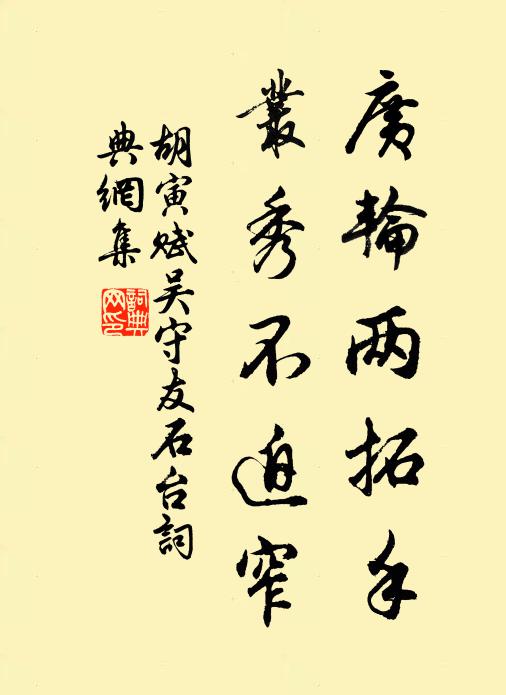 廣輪两拓手
叢秀不迫窄
胡寅賦吴守友石台詞
典網集
詞典
网印